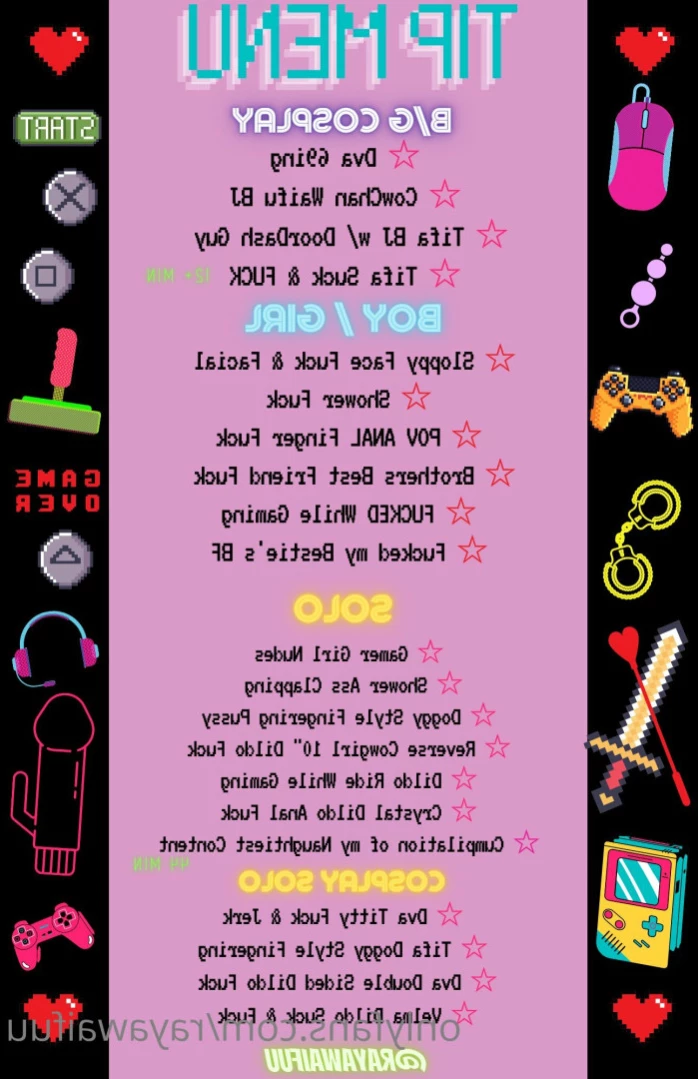 TIP MENU
B/G COSPLAY
START
Dva 69ing
CowChan Waifu BJ
Tifa BJ w/ DoorDash Guy
Tifa Suck & FUCK 12+ MIN
BOY / GIRL
Sloppy Face Fuck & Facial
Shower Fuck
POV ANAL Finger Fuck
Brothers Best Friend Fuck
GAME
OVER
FUCKED While Gaming
Fucked my Bestie's BF
SOLO
Gamer Girl Nudes
Shower Ass Clapping
Doggy Style Fingering Pussy
Reverse Cowgirl 10" Dildo Fuck
Dildo Ride While Gaming
Crystal Dildo Anal Fuck
Cumpilation of my Naughtiest Content
44 MIN
COSPLAY SOLO
Dva Titty Fuck & Jerk
Tifa Doggy Style Fingering
Dva Double Sided Dildo Fuck
Velma Dildo Suck & Fuck
onlyfans.com/rayawaifuu
@RAYAWAIFUU